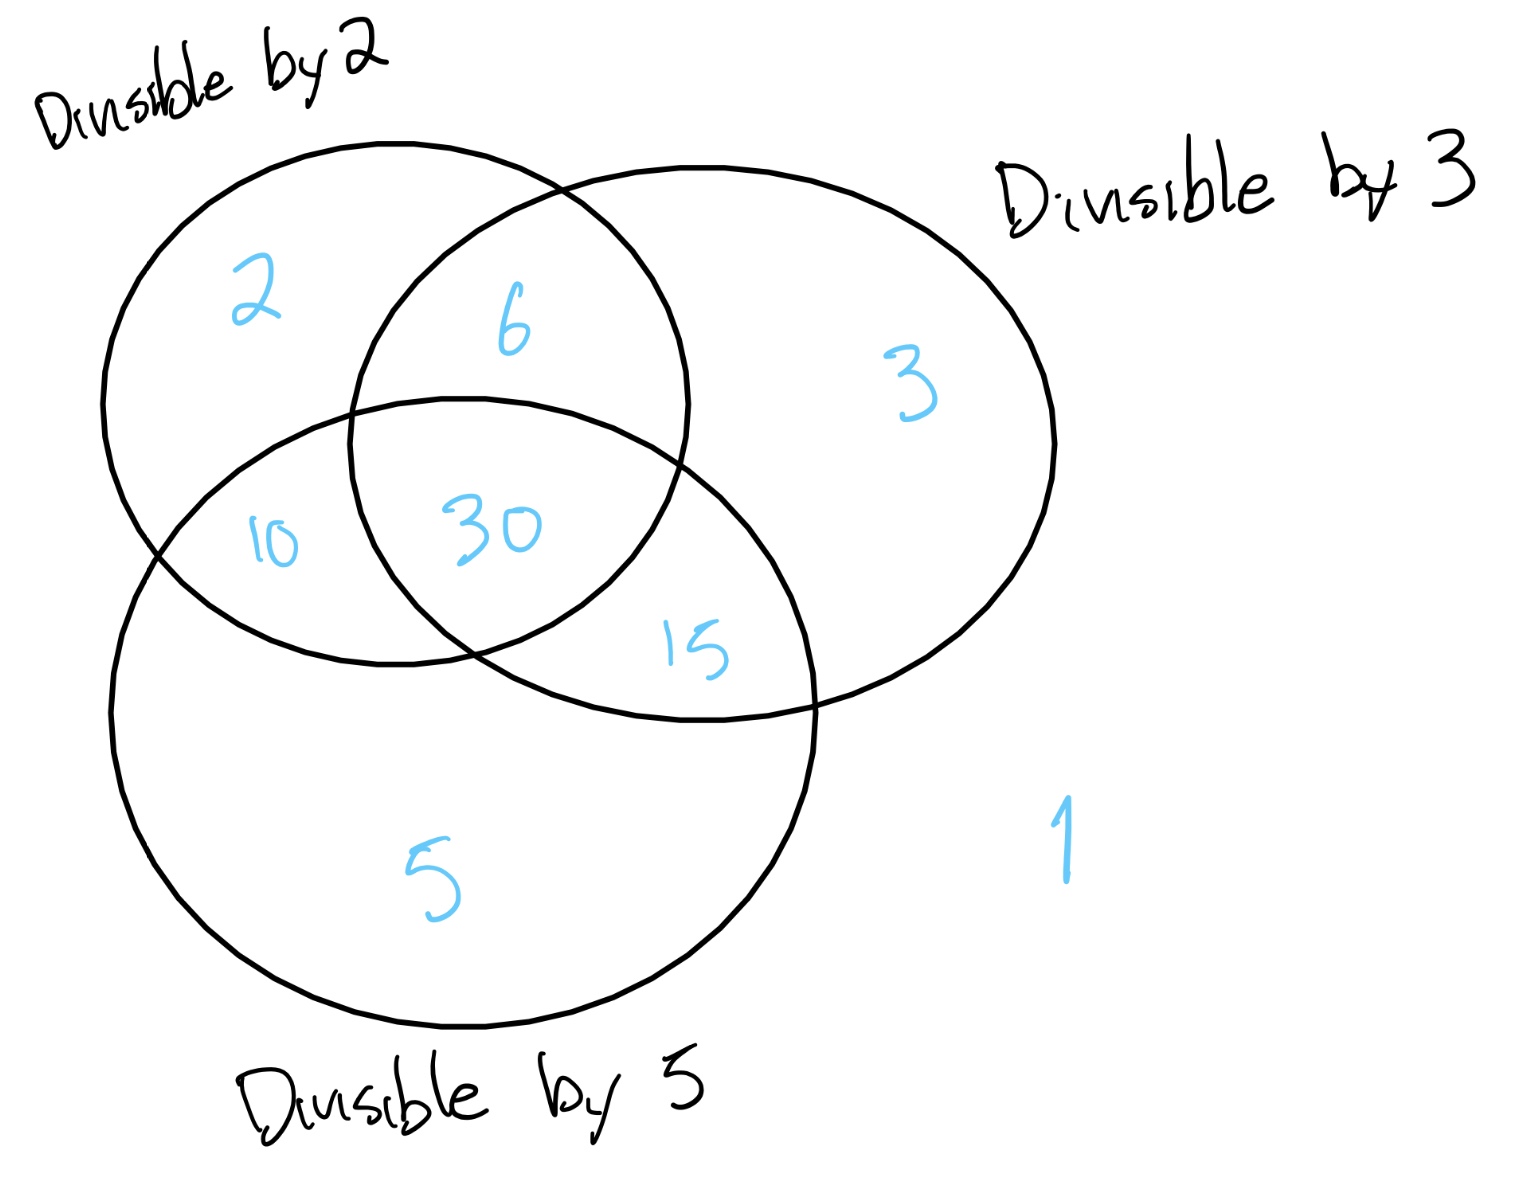 Divisible by 2
Divisible by 3
2
6
3
10
30
15
5
1
Divisible by 5